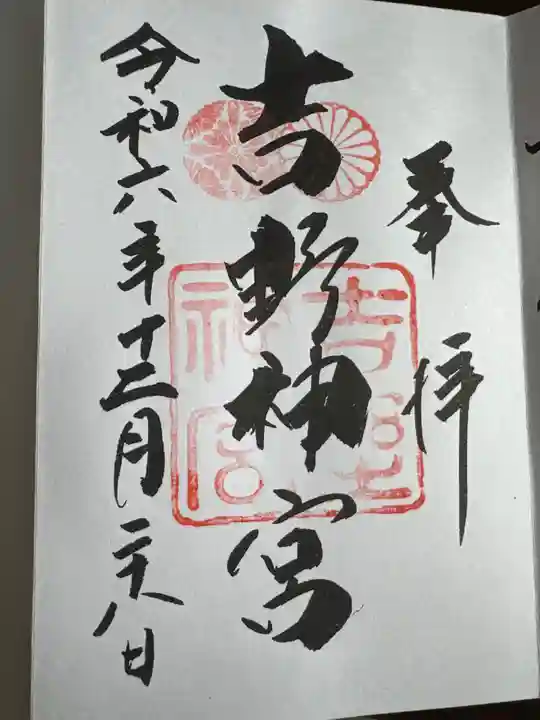 奉拝
吉野神宮
吉野
神宮
令和六年十二月二十八日